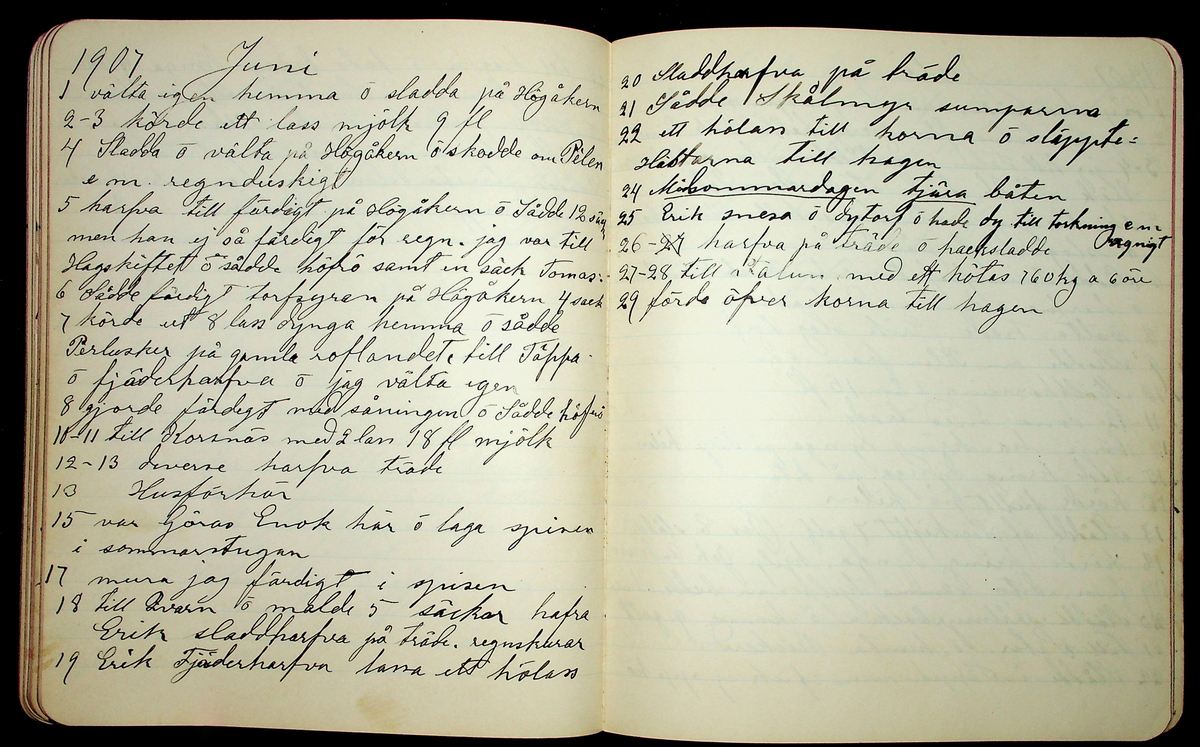 1907 Juni
1 välta igen hemma ö sladda på Högåkern
2-3 körde ett lass mjölk 9 fl
4 Sladda ö välta på Högåkern ö skodde om Pelen
e m. regnduskigt
5 harfva till färdigt på Högåkern ö Sådde 12 säc
men han ej så färdigt för regn. jag var till
Hagskiftet ö sådde höfrö samt en säck Tomas:
6 Sådde färdigt torfgyran på Högåkern 4 säck
7 körde ut 8 lass dynga hemma ö sådde
Perlusker på gamla roflandet. till Täppa
ö fjäderharfva ö jag välta igen
8 gjorde färdigt med såningen ö Sådde höfrö
10-11 till Korsnäs med 2 lass 18 fl mjölk
12-13 diverse harfva träde
13 Husförhör
15 var Göras Enok här ö laga spisen
i sommarstugan
17 mura jag färdigt i spisen
18 till Qvarn ö malde 5 säckar hafra
Erik sladdharfva på träde. regnskurar
19 Erik Fjäderharfva lassa ett hölass
20 Sladdharfva på träde
21 Sådde Skålmyr sumparna
22 ett hölass till korna ö släppte=
Hästarna till hagen
24 Midsommardagen tjära båten
25 Erik snesa ö dytorf ö hade dy till torkning e m
regnigt
26-27 harfva på träde ö haersladde
27-28 till Falun med ett hölas 760 kg a 6 öre
29 förde öfver korna till hagen